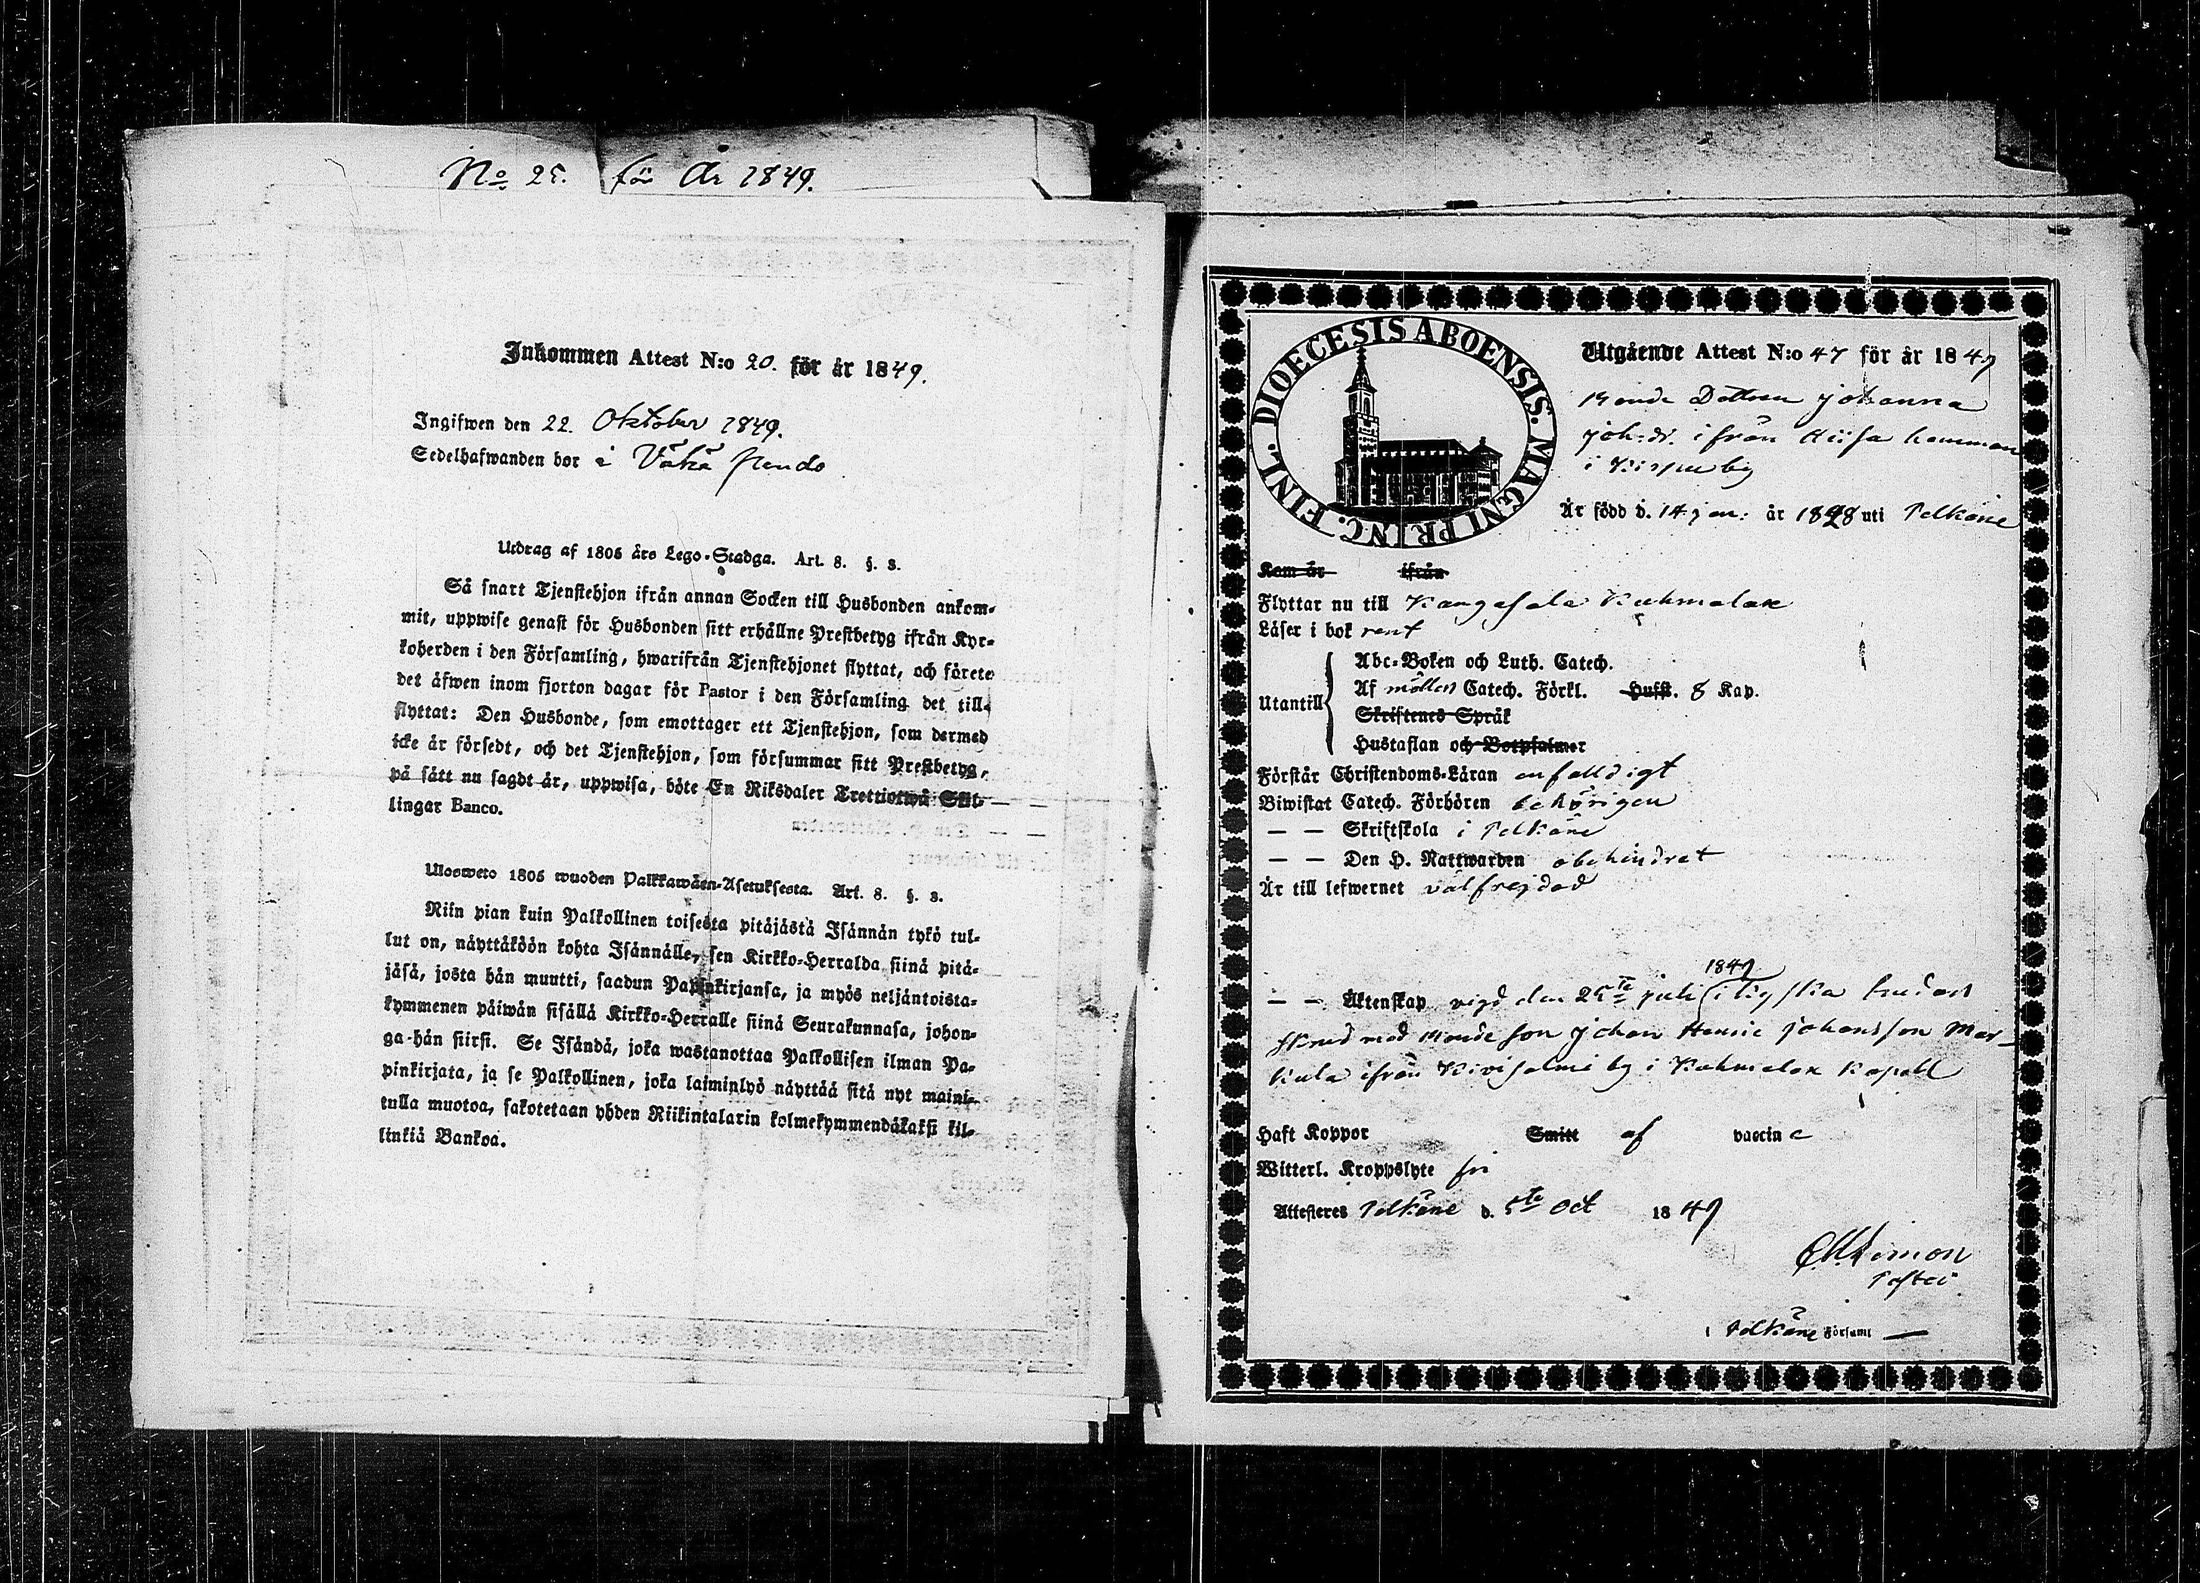 No 25. för År 1849.
Inkommen Attest N:o 20. för år 1849.
Ingifwen den 22. Oktober 1849.
Sedelhafwanden bor i Väkä
Utdrag af 1805 års Lego-Stadga. Art. 8. §. 3.
Så snart Tjenstehjon ifrån annan Socken till Husbonden ankom-
mit, uppwise genast för Husbonden sitt erhållne Prestbetyg ifrån Kyr-
koherden i den Församling, hwarifrån Tjenstehjonet flyttat, och förete
det äfwen inom fjorton dagar för Pastor i den Församling det till-
flyttat: Den Husbonde, som emottager ett Tjenstehjon, som dermed
icke är försedt, och det Tjenstehjon, som försummar sitt Prestbetyg,
på sätt nu sagdt är, uppwisa, böte En Riksdaler Trettiotwå Skil-
lingar Banco.
Ulosweto 1805 wuoden Palkkawäen-Asetuksesta. Art. 8. §. 3.
Niin pian kuin Palkollinen toisesta pitäjästä Isännän tykö tul-
lut on, näyttäköön kohta Isännälle, sen Kirkko-Herralda siinä pitä-
jäsä, josta hän muutti, saadun Papinkirjansa, ja myös neljäntoista-
kymmenen päiwän sisällä Kirkko-Herralle siinä Seurakunnasa, johon-
ga hän siirsi. Se Isändä, joka wastanottaa Palkollisen ilman Pa-
pinkirjata, ja se Palkollinen, joka laiminlyö näyttää sitä nyt maini-
tulla muotoa, sakotetaan yhden Riikintalarin kolmekymmendäkaksi kil-
linkiä Bankoa.
DIOECESIS ABOENSIS. MAGNI PRINC. FINL.
Utgående Attest N:o 47 för år 1849
Bonde Dottren Johanna
Joh:dr. ifrån Hiisa hemman
i by
Är född d. 14 jan: år 1828 uti Pelkäne
Kom år ifrån
Flyttar nu till Kangasala Kuhmalax
Läser i bok rent
Utantill
Abc-Boken och Luth. Catech.
Af möllers Catech. Förkl. Husst. 8 Kap.
Skriftenes Språk
Hustaflan och Botpsalmer
Förstår Christendoms-Läran enfalldigt
Biwistat Catech. Förhören behörigen
— — Skriftskola i Pelkäne
— — Den H. Nattwarden obehindrat
Är till lefwernet välfrejdad
1849
— — Äktenskap vigd den 25te juli
med Bonde son Johan Henric Johansson Mar-
kula ifrån Kivisalmi by i Kuhmalax Kapell
Haft Koppor Smitt af vaccine
Witterl. Kroppslyte fri
Attesteres Pelkäne d. 5te Oct 1849
Pastor
i Pelkäne Församl —